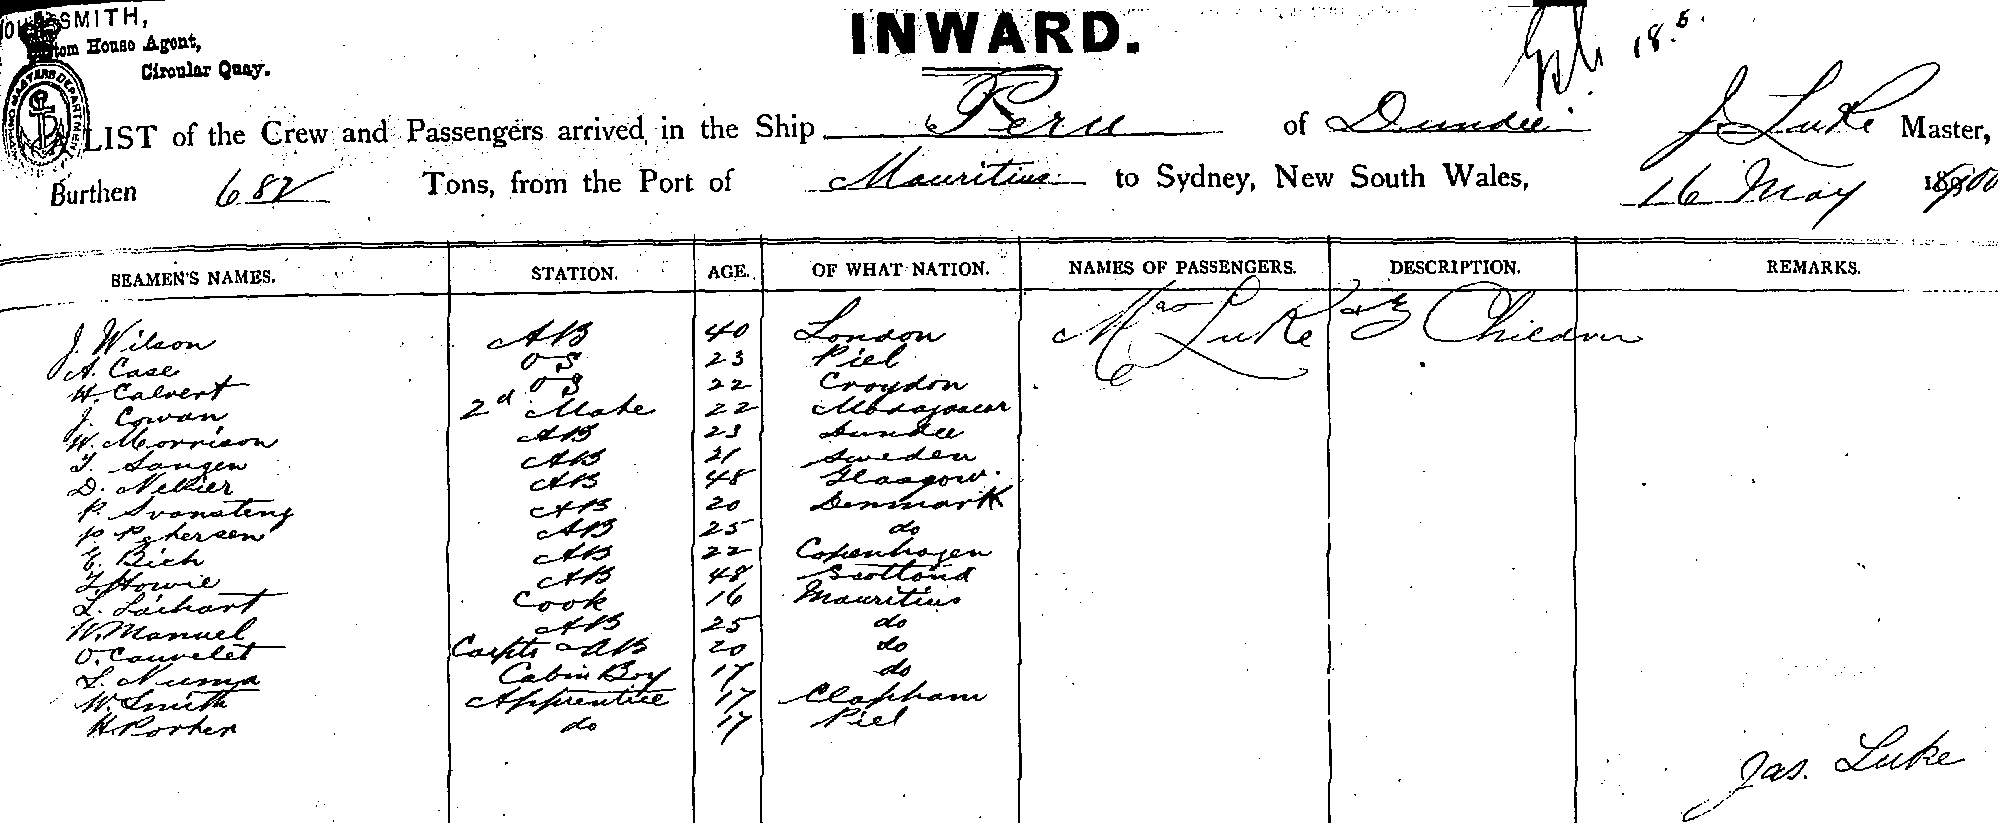 SMITH,
House Agent,
Circular Quay.
INWARD.
18.5.
LIST of the Crew and Passengers arrived in the Ship Peru of Dundee J Luke Master,
Burthen 682 Tons, from the Port of Mauritius to Sydney, New South Wales, 16 May 1900
SEAMEN'S NAMES. STATION. AGE. OF WHAT NATION. NAMES OF PASSENGERS. DESCRIPTION. REMARKS.
J. Wilson AB 40 London Mrs Luke & 3 Children
A. Case OS 23 Piel
H. Calvert OS 22 Croydon
J. Cowan 2nd Mate 22 Madagascar
W. Morrison AB 23 Dundee
AB 21 Sweden
D. AB 48 Glasgow.
P. AB 20 Denmark
P Petersen AB 25 do
E. Bich AB 22 Copenhagen
Howie AB 48 Scotland
L. Cook 16 Mauritius
W. Manuel AB 25 do
O. Cauvelet & AB 20 do
L. Numa Cabin Boy 17 do
W. Smith Apprentice 17 Clapham
H. Porter do 17 Piel
Jas. Luke